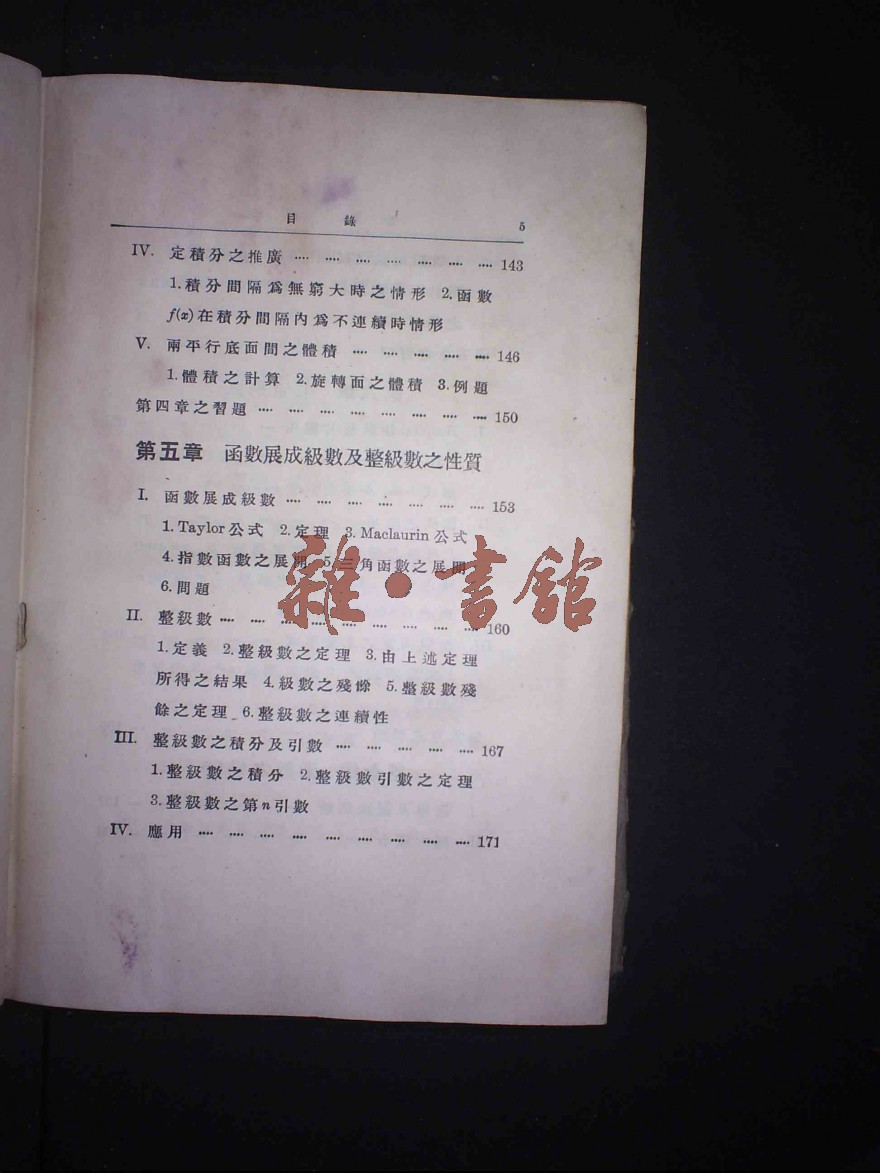 目 錄 5
IV. 定積分之推廣 ···· ···· ···· ···· ···· ···· ···· 143
1.積分間隔爲無窮大時之情形 2.函數
f(x)在積分間隔內爲不連續時情形
V. 兩平行底面間之體積 ···· ···· ···· ···· ···· 146
1.體積之計算 2.旋轉面之體積 3.例題
第四章之習題 ···· ···· ···· ···· ···· ···· ···· ···· 150
第五章 函數展成級數及整級數之性質
I. 函數展成級數 ···· ···· ···· ···· ···· ···· ···· 153
1.Taylor公式 2.定理 3.Maclaurin公式
4.指數函數之展開 5.三角函數之展開
6.問題
雜·書館
II. 整級數 ···· ···· ···· ···· ···· ···· ···· ···· ···· 160
1.定義 2.整級數之定理 3.由上述定理
所得之結果 4.級數之殘餘 5.整級數殘
餘之定理 6.整級數之連續性
III. 整級數之積分及引數 ···· ···· ···· ···· ···· 167
1.整級數之積分 2.整級數引數之定理
3.整級數之第n引數
IV. 應用 ···· ···· ···· ···· ···· ···· ···· ···· ···· 171